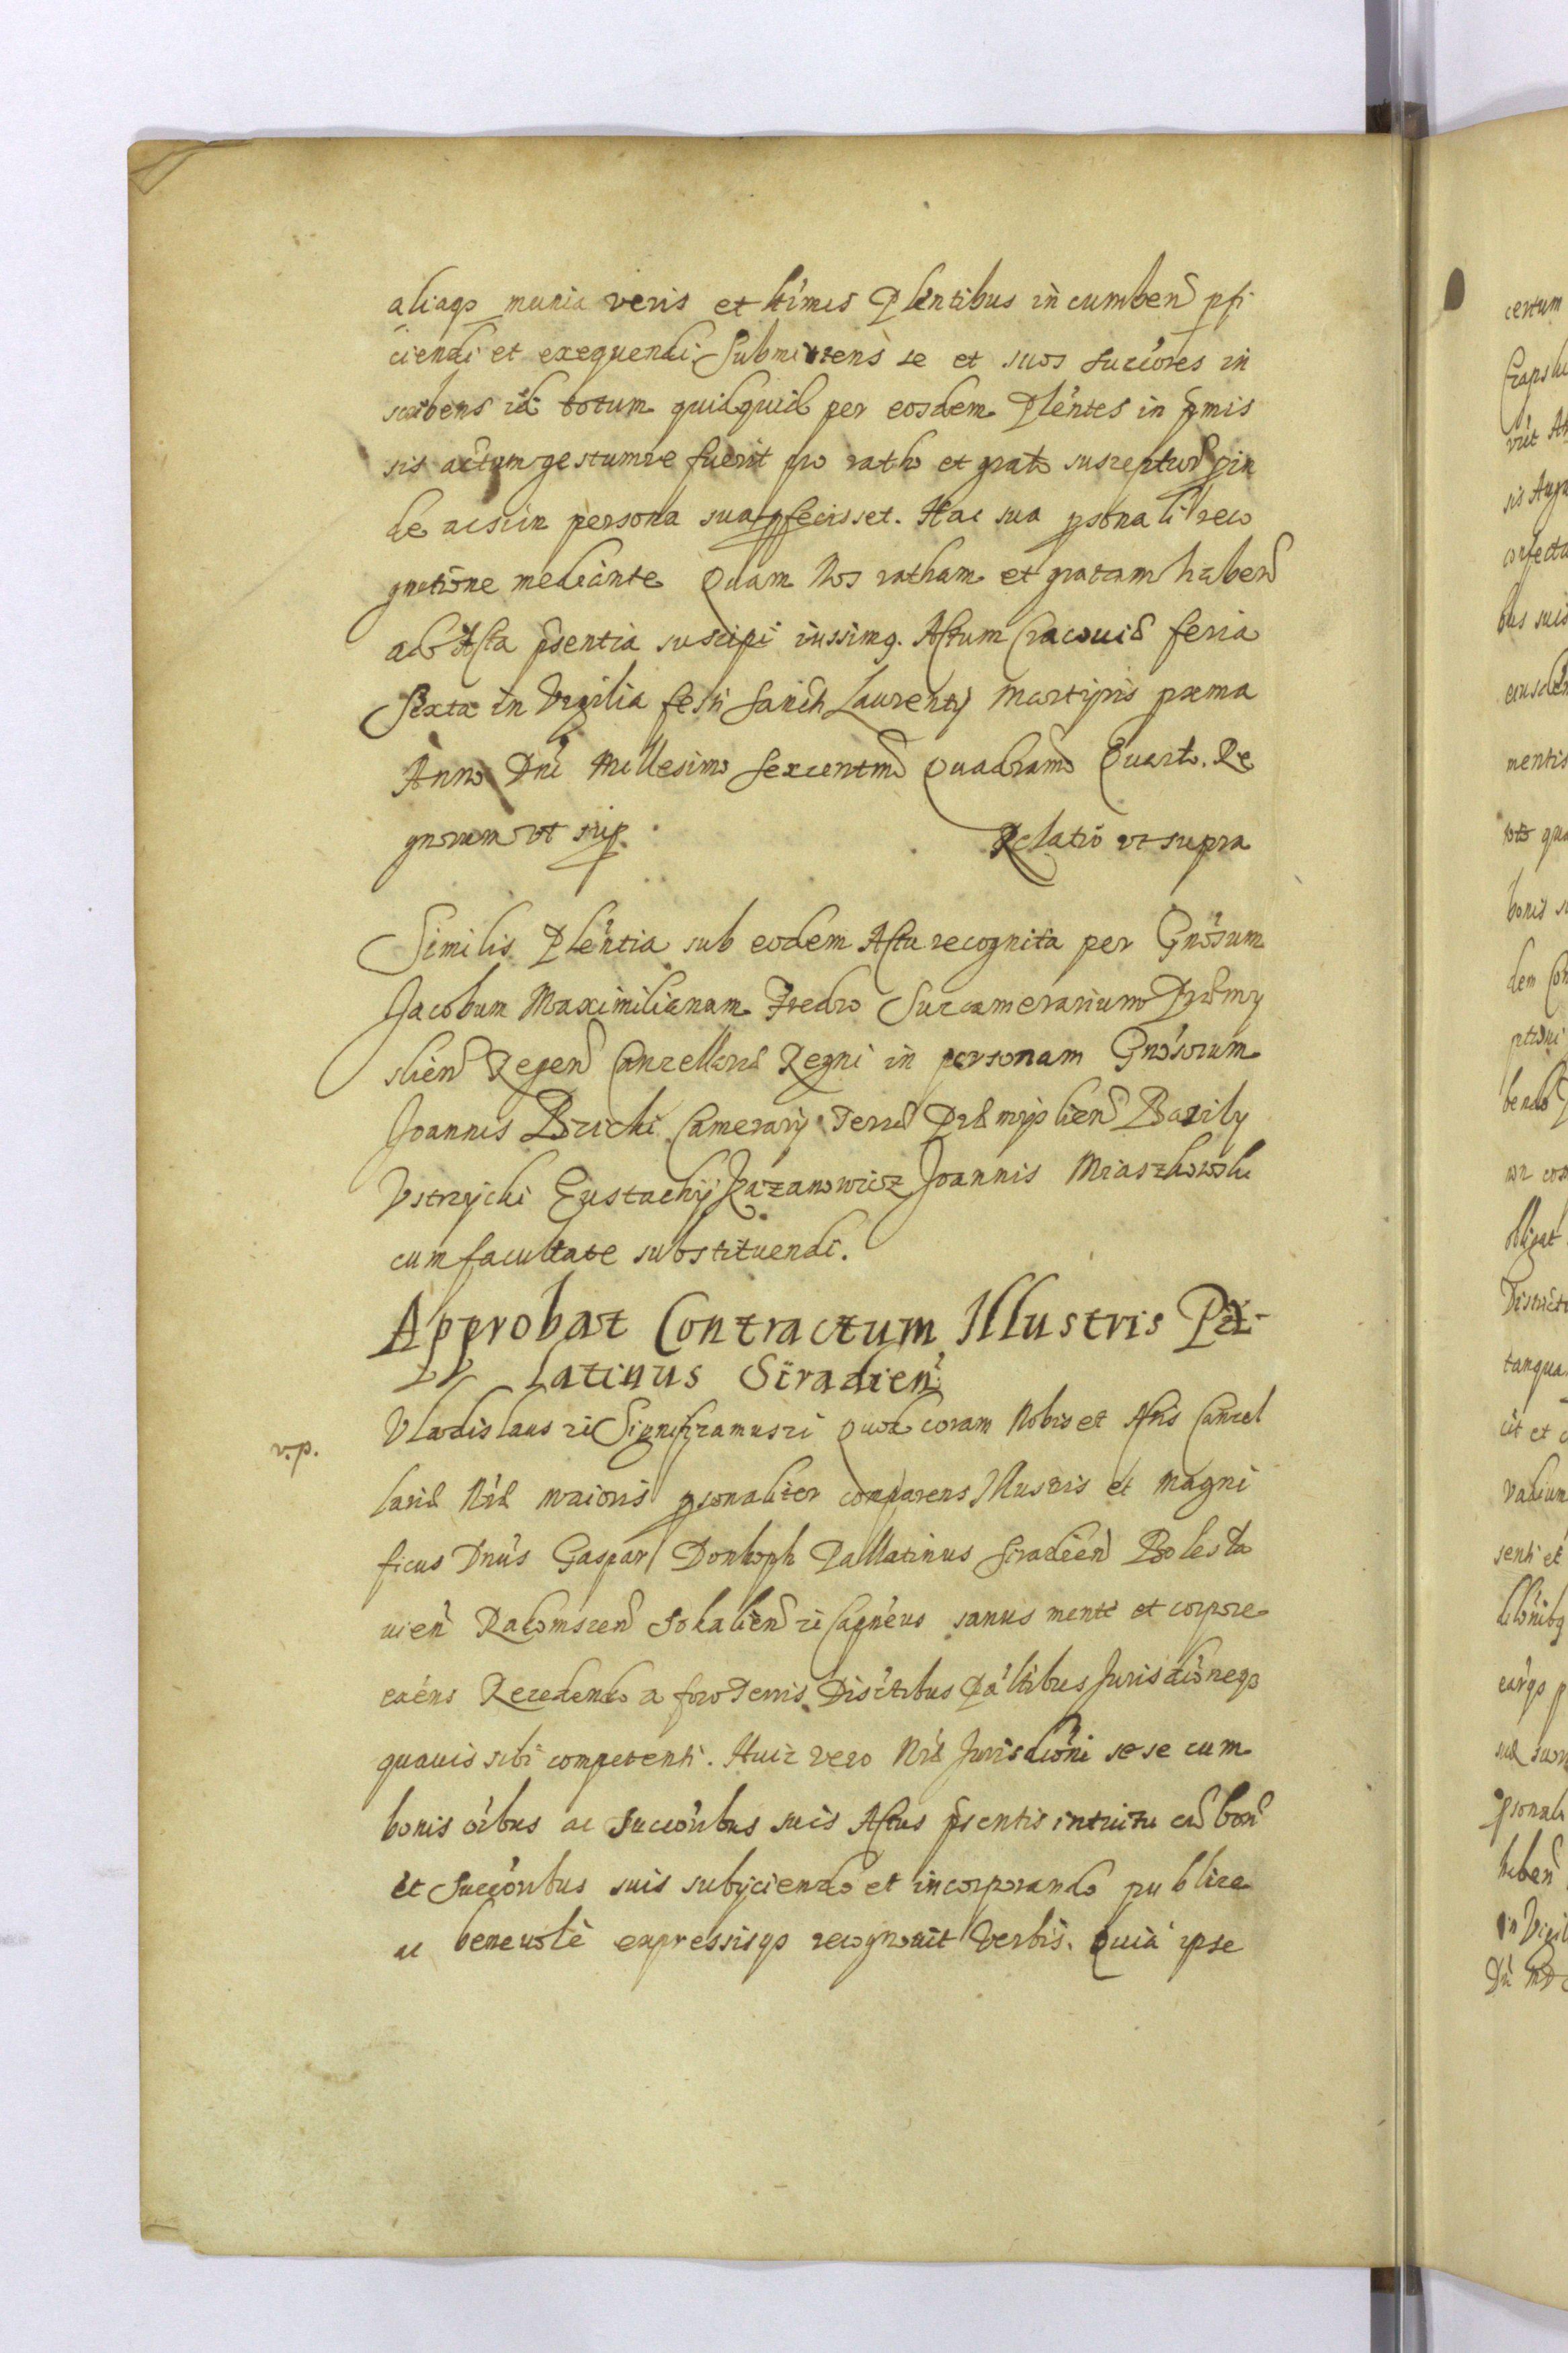 aliaqs munia veris et ltimis Plentibus incumben pfi
ciendi et exequendi. Submittens se et suos succores in
scribens id totum quidquid per eosdem Plentes in pmis
sis actum gestumve fuerit pro ratho et grato suscepturus pin
de ac si in persona sua pfecisset. Hac sua psonali reco
gnitione mediante Quam Nos ratham et gratam haben
ad Acta psentia suscipi iussimq. Actum Cracouiæ feria
Sexta in Vigilia festi Sancti Laurentij Martyris proxma
Anno Dni Millesimo Sexcentmo Quadragmo Quarto. Re
gnorum vt sup.
Relatio vt supra
Similis Plentia sub eodem Actu recognita per Gnosum
Jacobum Maximilianum Fredro Succamerarium Præmy
slien Regen Cancellariæ Regni in personam Gnosorum
Joannis Biricki Camerarij Terræ Præmyslien Basily
Vstrzycki Eustachij Kazanowicz Joannis Miaszkowski
cum facultate substituendi.
Approbat Contractum Illustris Pa-
latinus Siradien
v.p.
Vladislaus zi Significamus zi Quod coram Nobis et Actis Cancel
lariæ Nræ maioris psonaliter comparens Illustris et Magni
ficus Dnus Gaspar Donhoph Pallatinus Siradien Bolesla
uien Radomscen Sokalien zi Capneus sanus mente et corpore
exens Recedendo a foro Terris Disctibus Paltibus Jurisdioneqs
quauis sibi competenti. Huic vero Nræ Jurisdioni sese cum
bonis oibus ac Succoribus suis Actus psentis intuitu cu bon
et Succoribus suis subijciendo et incorporando publice
ac beneuole expressisqs recognouit Verbis. Quia ipse